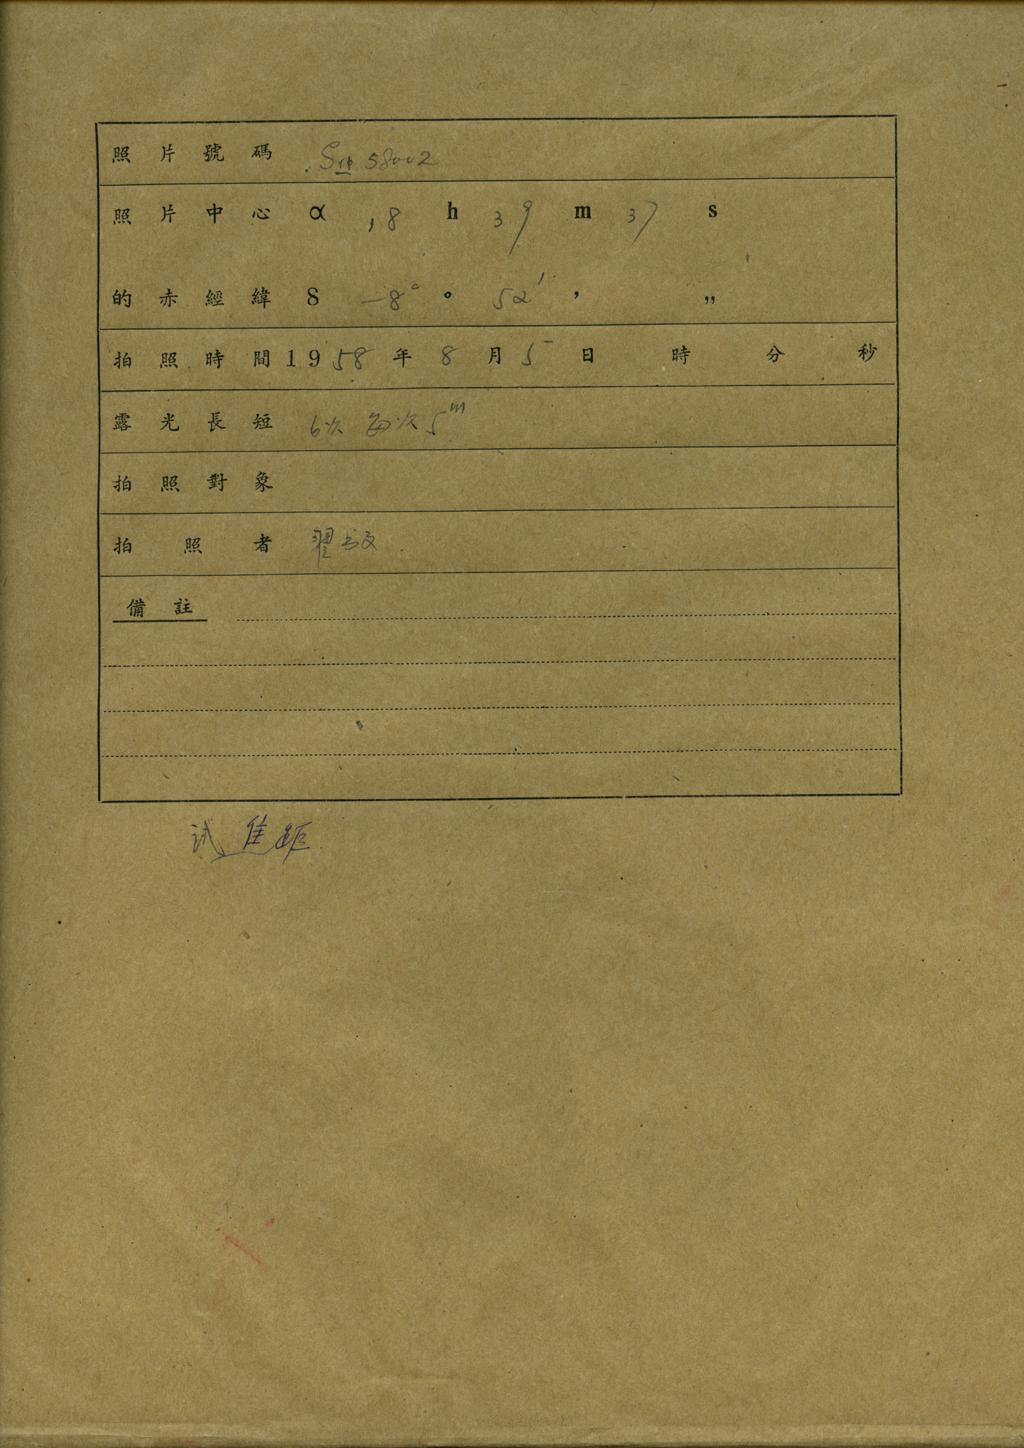 照片號碼 S 58002
照片中心 α 18 h 39 m 37 s
的赤經緯 δ -8° ° 52' ' "
拍照時間 1958年 8月 5日 時 分 秒
露光長短 6次 每次5m
拍照對象
拍照者 翟
備註
试焦距